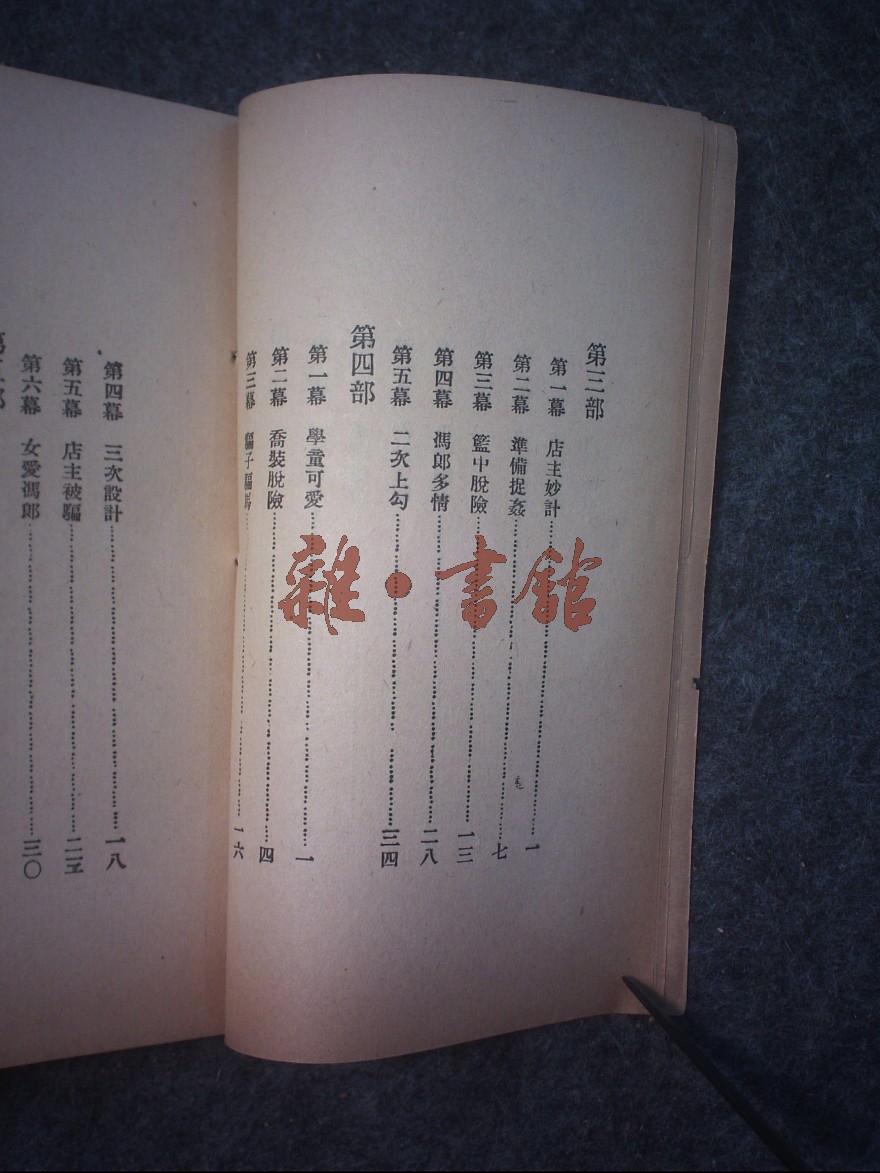 第三部
第一幕 店主妙計 一
第二幕 準備捉姦 七
第三幕 籃中脫險 一三
第四幕 馮郎多情 二八
第五幕 二次上勾 三四
第四部
第一幕 學童可愛 一
第二幕 喬裝脫險 四
第三幕 騙子騙馬 一六
第四幕 三次設計 一八
第五幕 店主被騙 二三
第六幕 女愛馮郎 三〇
雜·書館